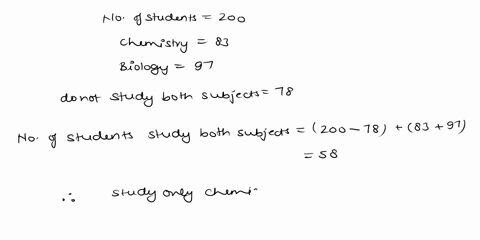 No. of students = 200
Chemistry = 83
Biology = 97
do not study both subjects = 78
No. of students study both subjects = (200 - 78) + (83 + 97)
= 58
∴ study only chemi